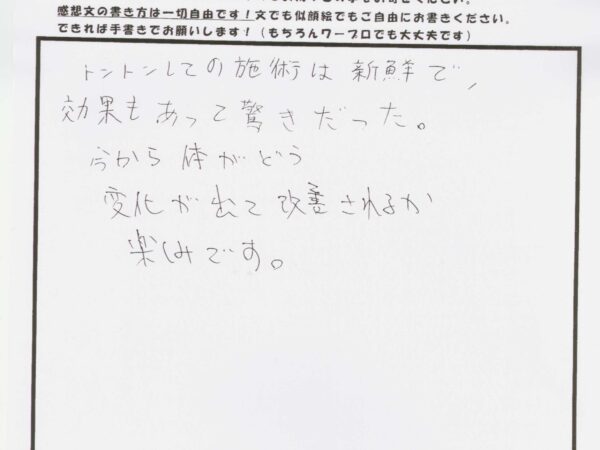 感想文の書き方は一切自由です！文でも似顔絵でもご自由にお書きください。
できれば手書きでお願いします！（もちろんワープロでも大丈夫です）
トントンしての施術は新鮮で、
効果もあって驚きだった。
今から体がどう
変化が出て改善されるか
楽しみです。